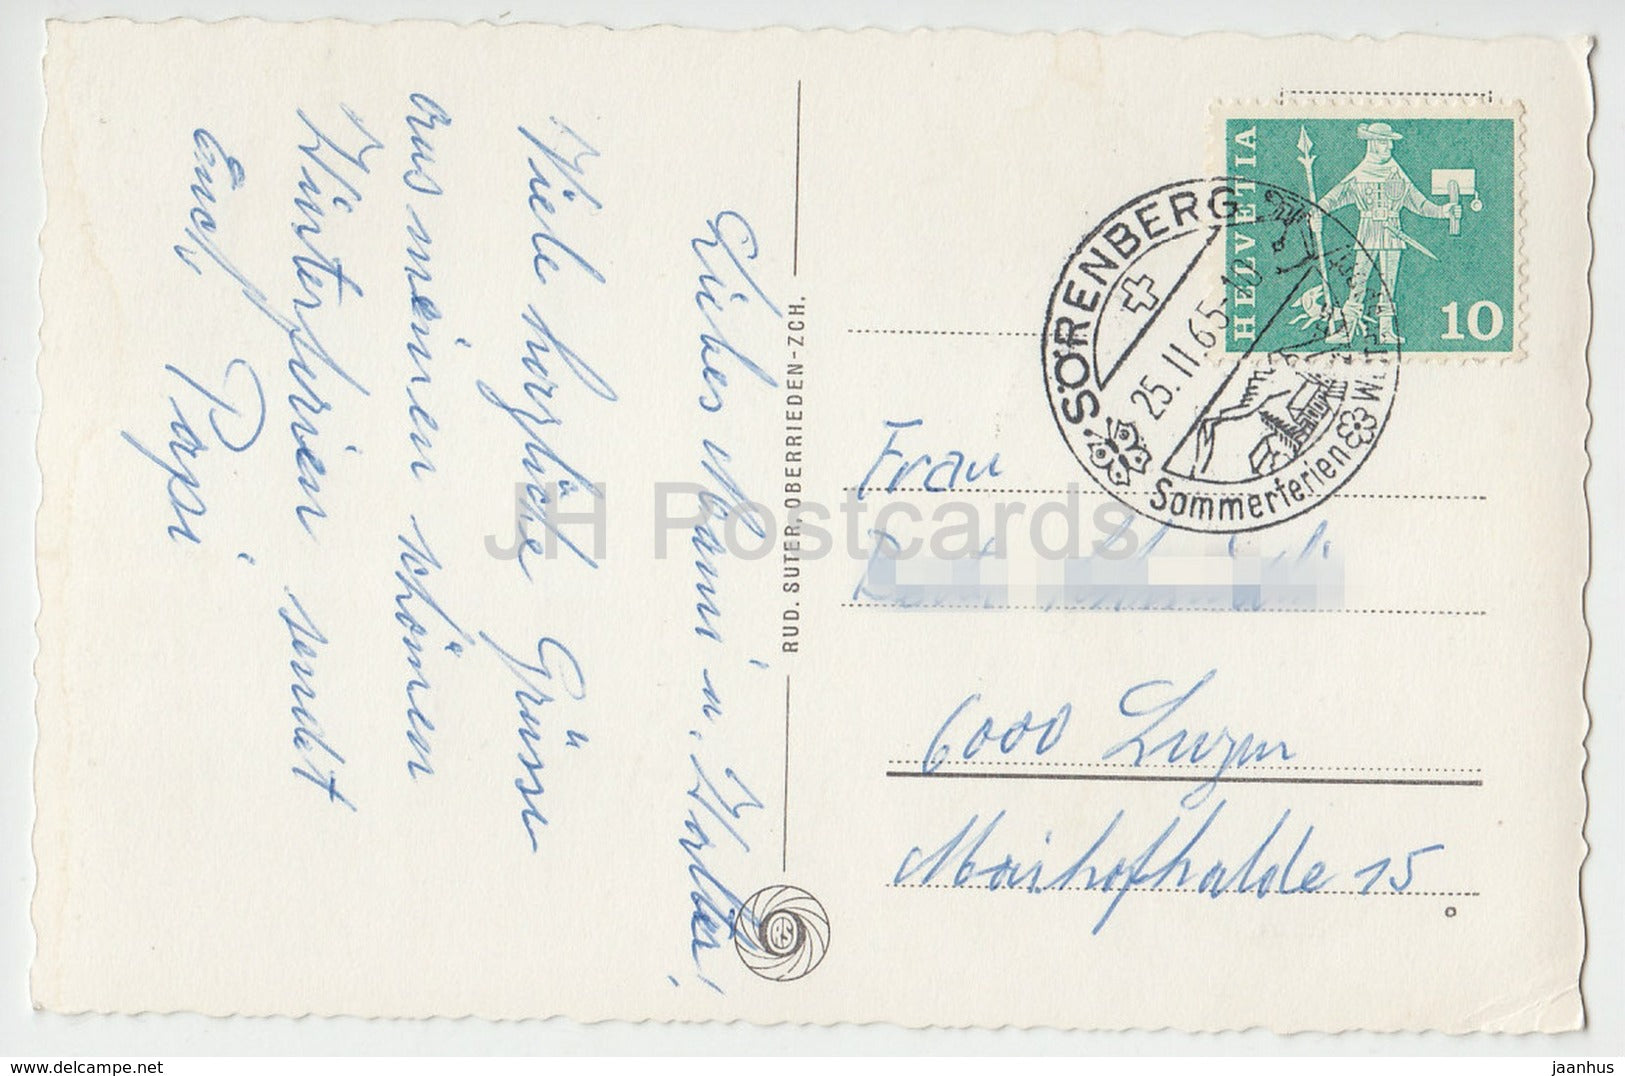 Liebes Mami u. Walter!
Viele herzliche Grüsse
aus meinen schönen
Winterferien sendet
Euch
Papi
RUD. SUTER, OBERRIEDEN-ZCH.
HELVETIA
10
SÖRENBERG
25.11.65-10
Sommerferien
Frau
6000 Luzern
Maihofhalde 15
JH Postcards
jaanhus